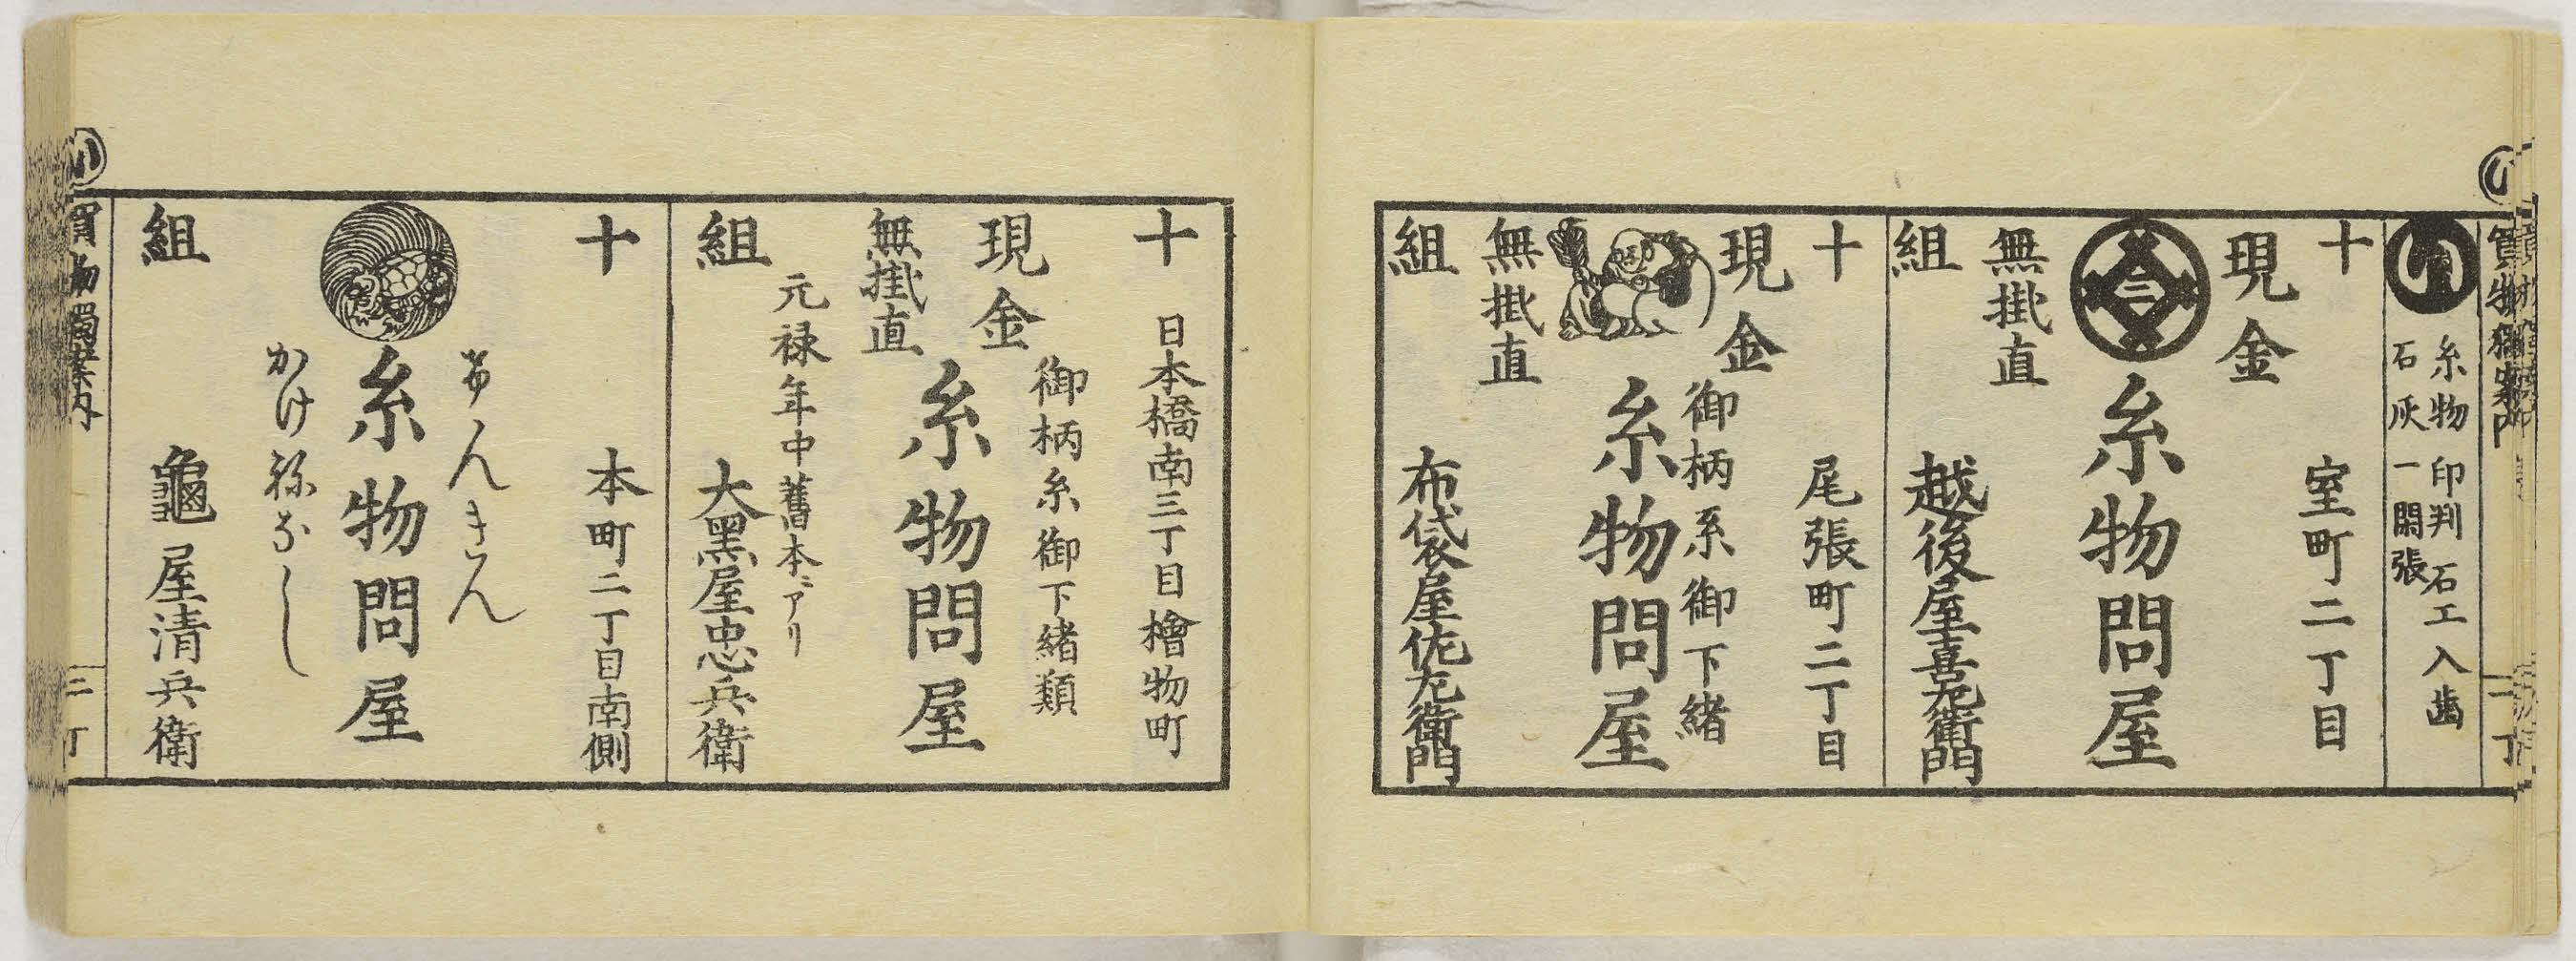 買物獨案内
い
糸物 印判 石工 入歯
石灰 一閑張
十
室町二丁目
現金
糸物問屋
無掛直
組
越後屋喜左衛門
十
尾張町二丁目
現金
御柄糸御下緒
糸物問屋
無掛直
組
布袋屋佐左衛門
十
日本橋南三丁目檜物町
現金
御柄糸御下緒類
糸物問屋
無掛直
元禄年中舊本ニアリ
組
大黑屋忠兵衛
十
本町二丁目南側
けんきん
糸物問屋
かけねなし
組
龜屋清兵衛
買物獨案内
二丁